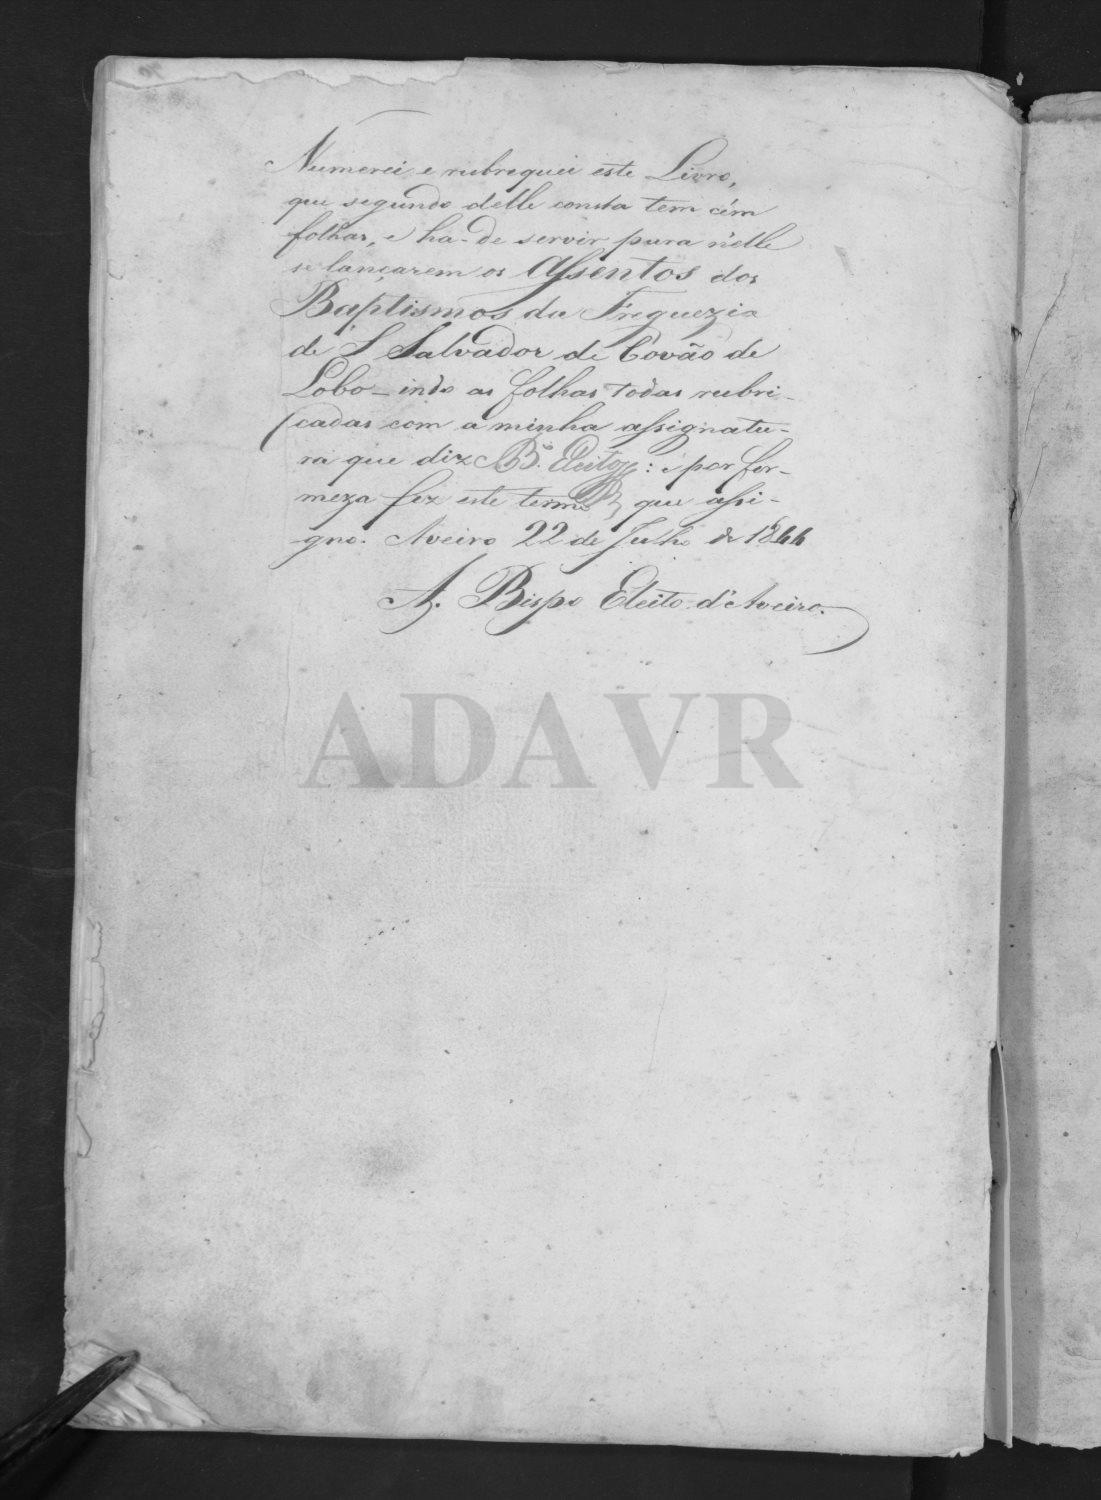 Numerei, e rubrequei este Livro,
que segundo delle consta tem cém
folhas, e ha-de servir para n'elle
se lançarem os Assentos dos
Baptismos da Freguezia
de S Salvador de Covão de
Lobo – indo as folhas todas rubri-
cadas com a minha assignatu-
ra que diz B.º Eleito: e por fer-
meza fez este termo que assi-
gno. Aveiro 22 de Julho de 1844
A. Bispo Eleito d'Aveiro.
ADAVR